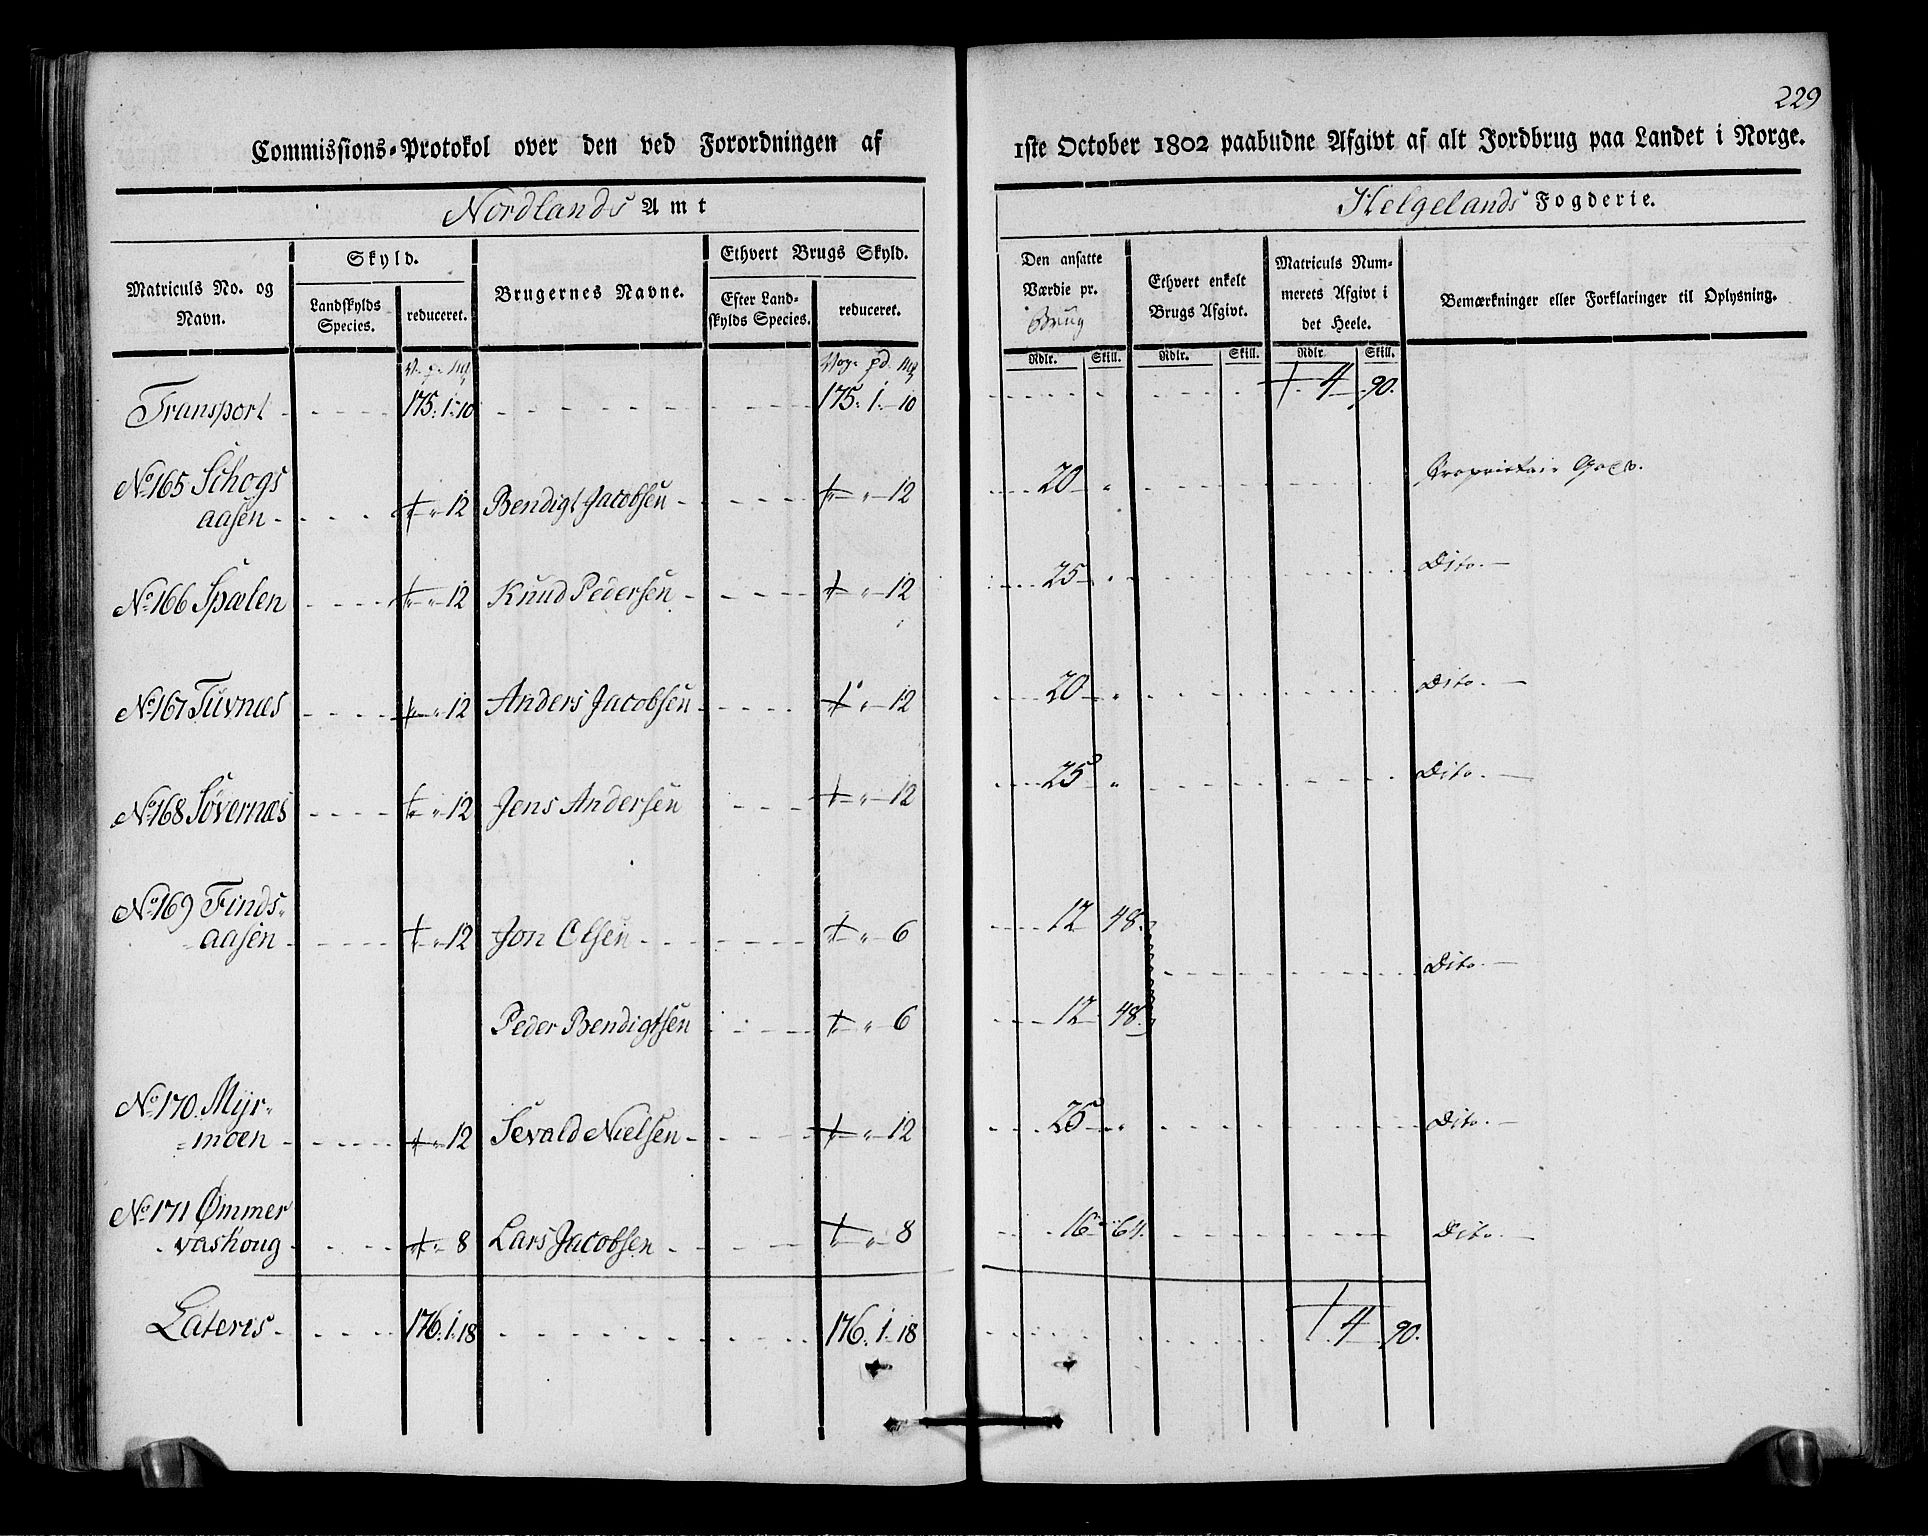 229
Commissions-Protokol over den ved Forordningen af 1ste October 1802 paabudne Afgivt af alt Jordbrug paa Landet i Norge.
Nordlands Amt
Helgelands Fogderie.
Matriculs No. og Navn.
Skyld.
Landskylds Species.
reduceret.
Brugernes Navne.
Ethvert Brugs Skyld.
Efter Landskylds Species.
reduceret.
Den ansatte Værdie pr. Brug
Ethvert enkelt Brugs Afgivt.
Matriculs Nummerets Afgivt i det Heele.
Bemærkninger eller Forklaringer til Oplysning.
Rdlr. Skill. Rdlr. Skill. Rdlr. Skill.
Transport 175. 1. 10 175. 1. 10 4 90.
No 165 Schogs
aasen 12 Bendigt Jacobsen 12 20 Proprietair
No 166 Spælen 12 Knud Pedersen 12 25 Dito.
No 167 Tuvnæs 12 Anders Jacobsen 12 20 Dito.
No 168 Søvernæs 12 Jens Andersen 12 25 Dito.
No 169 Finds-
aasen 12 Jon Olsen 6 12 48. Dito.
Peder Bendigtsen 6 12 48.
No 170. Myr-
moen 12 Sevald Nielsen 12 25 Dito.
No 171 Ømmer
vashoug 8 Lars Jacobsen 8 16 64. Dito.
Lateris 176. 1. 18 176. 1. 18 4 90.